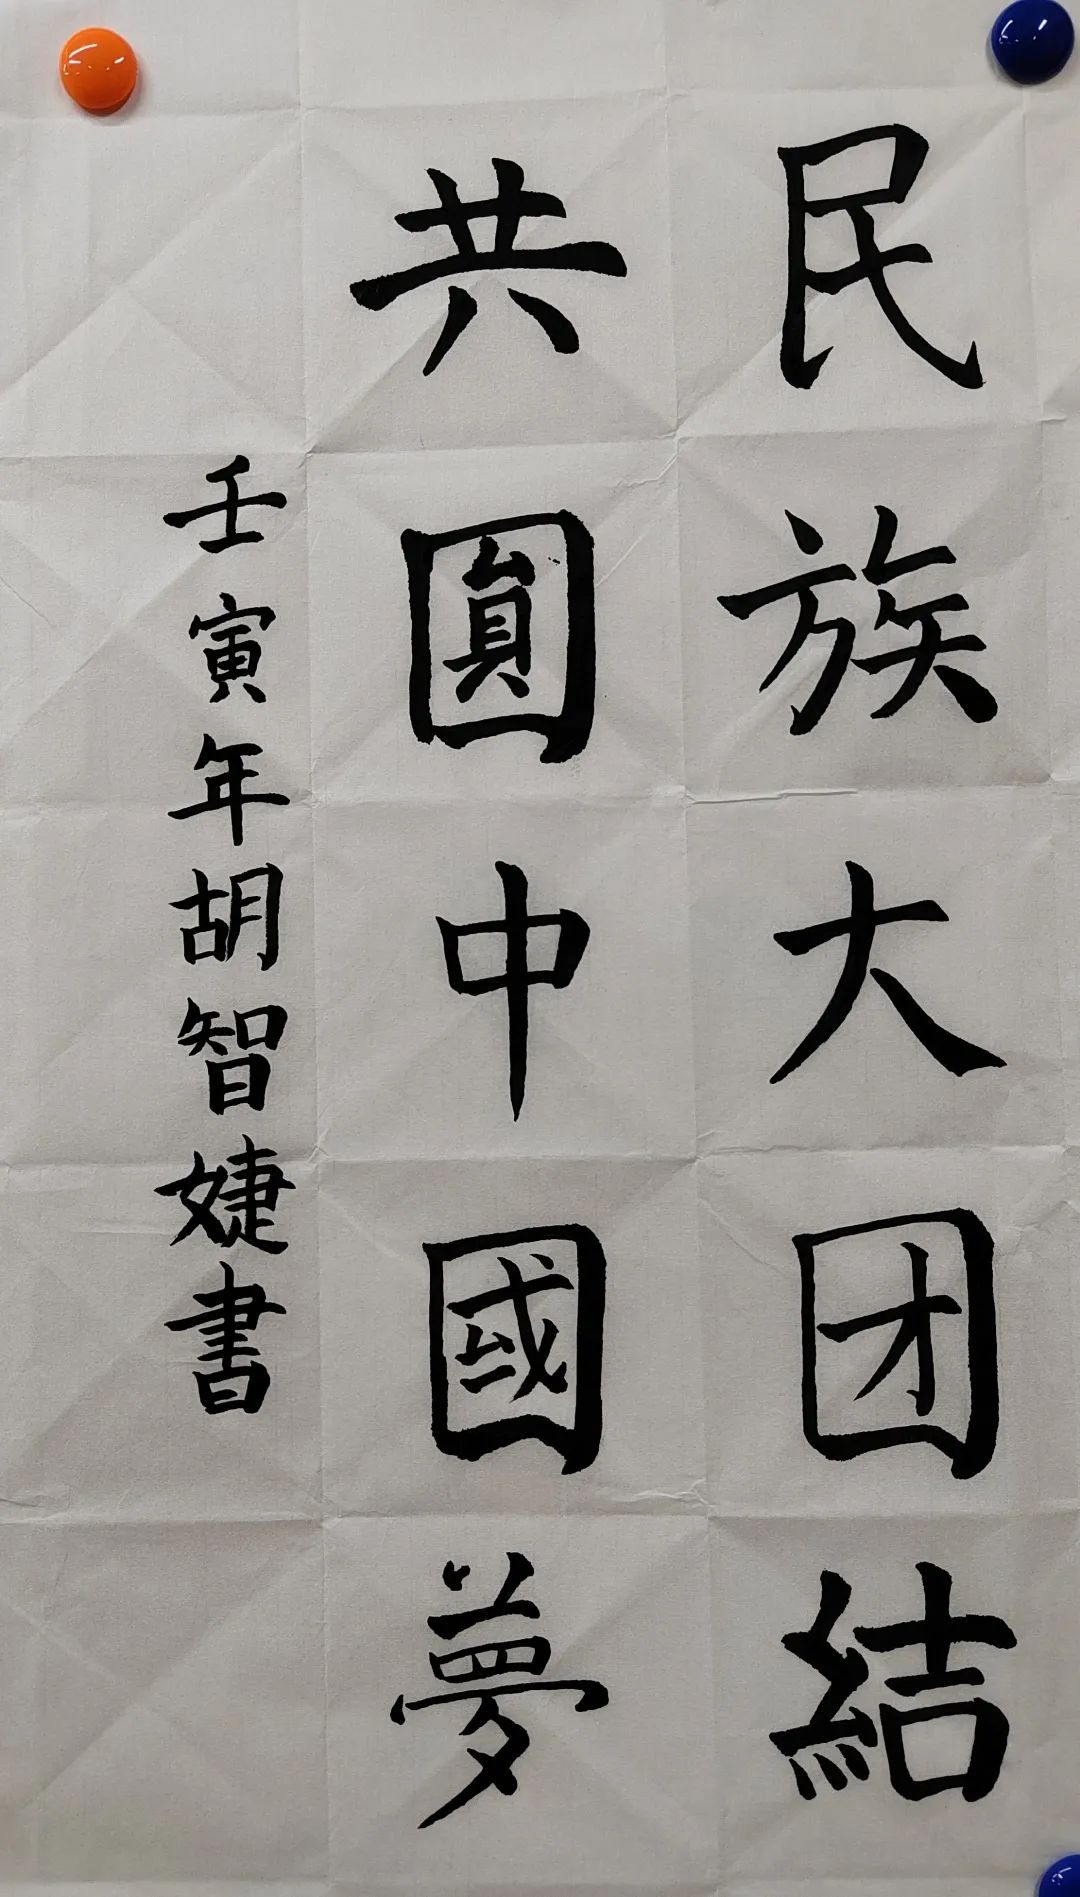 民族大团結
共圓中國夢
壬寅年胡智婕書